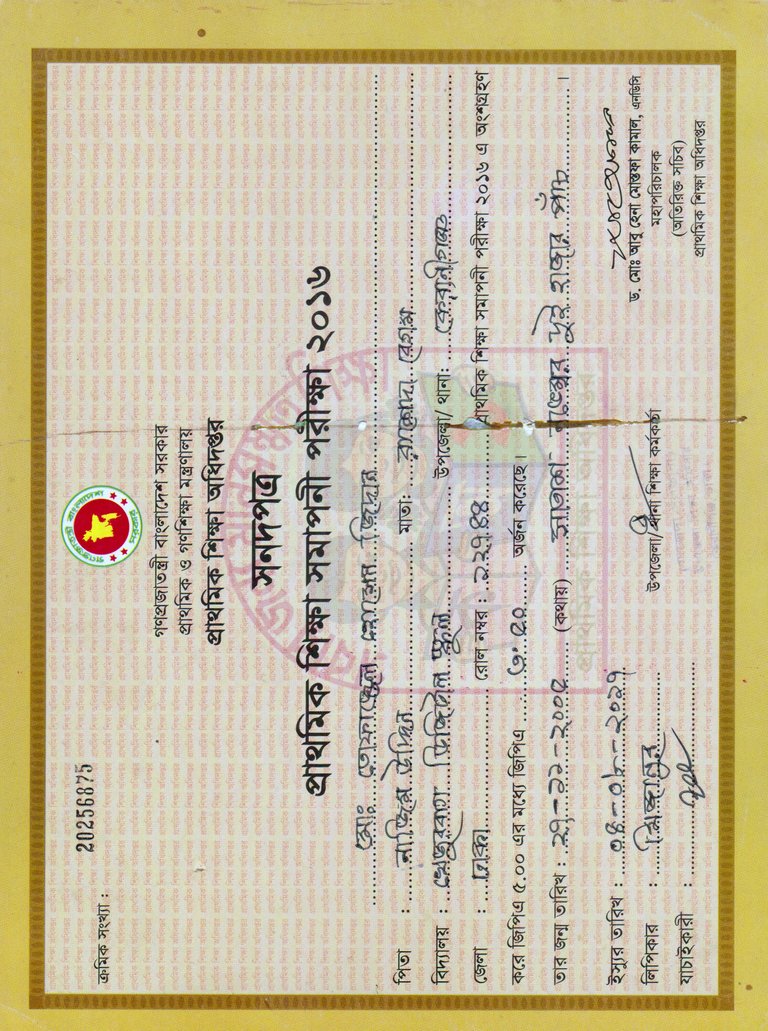 ক্রমিক সংখ্যা : 20256875
গণপ্রজাতন্ত্রী বাংলাদেশ সরকার
প্রাথমিক ও গণশিক্ষা মন্ত্রণালয়
প্রাথমিক শিক্ষা অধিদপ্তর
সনদপত্র
প্রাথমিক শিক্ষা সমাপনী পরীক্ষা ২০১৬
মোঃ তোফাজ্জেল হোসেন জিদান
পিতা : নাজিম উদ্দিন মাতা: রাশেদা বেগম
বিদ্যালয় : খেজুরবাগ ডিজিটাল স্কুল উপজেলা/ থানা: কেরানীগঞ্জ
জেলা : ঢাকা রোল নম্বর : ২২৭৪৪ প্রাথমিক শিক্ষা সমাপনী পরীক্ষা ২০১৬ এ অংশগ্রহণ
করে জিপিএ ৫.০০ এর মধ্যে জিপিএ ৩.৫০ অর্জন করেছে।
তার জন্ম তারিখ : ২৭-১১-২০০৫ (কথায়) সাতাশ নভেম্বর দুই হাজার পাঁচ।
ইস্যুর তারিখ : ০৪-০৮-২০২১
লিপিকার : মিজানুর
যাচাইকারী :
উপজেলা/থানা শিক্ষা কর্মকর্তা
ড. মোঃ আবু হেনা মোস্তফা কামাল, এনডিসি
মহাপরিচালক
(অতিরিক্ত সচিব)
প্রাথমিক শিক্ষা অধিদপ্তর